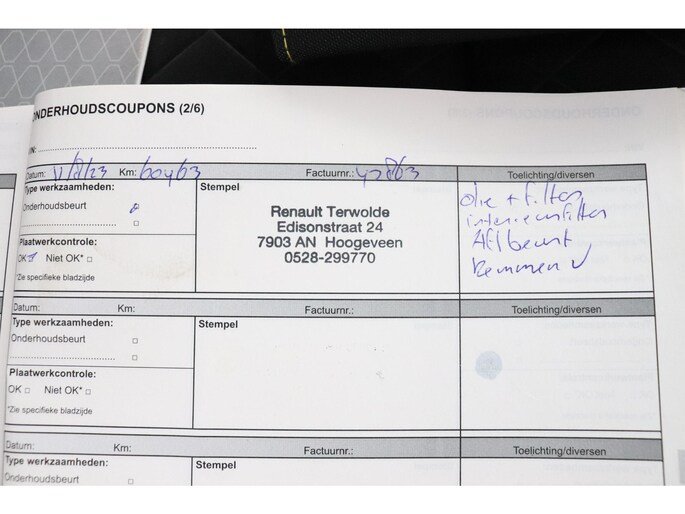 ONDERHOUDSCOUPONS (2/6)
IN:
Datum: 11/8/23 Km: 60463 Factuurnr.: Toelichting/diversen
Type werkzaamheden: Stempel
Onderhoudsbeurt
Renault Terwolde
Edisonstraat 24
7903 AN Hoogeveen
0528-299770
olie + filter
interieurfilter
beurt
Remmen ✓
Plaatwerkcontrole:
OK Niet OK* □
*Zie specifieke bladzijde
Datum: Km: Factuurnr.: Toelichting/diversen
Type werkzaamheden: Stempel
Onderhoudsbeurt □
□
Plaatwerkcontrole:
OK □ Niet OK* □
*Zie specifieke bladzijde
Datum: Km: Factuurnr.: Toelichting/diversen
Type werkzaamheden: Stempel
Onderhoudsbeurt □